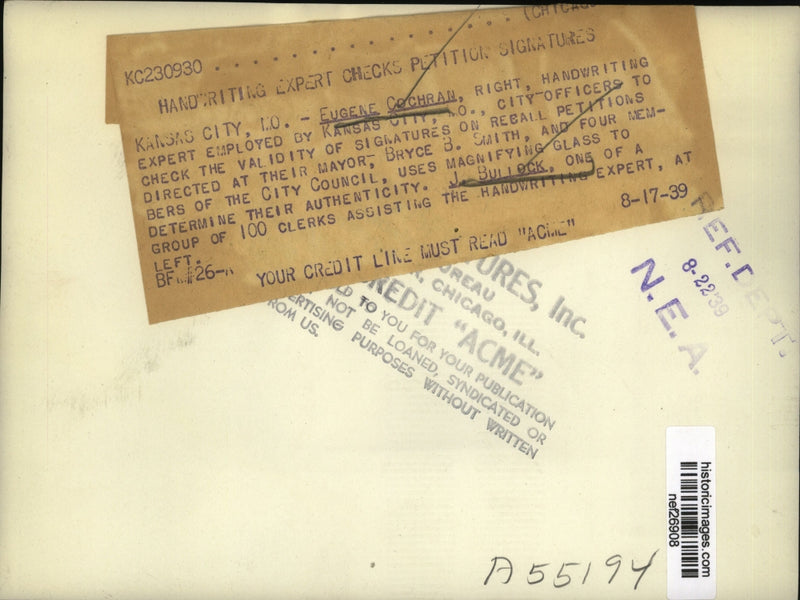 (CHICAGO
KC230930
HANDWRITING EXPERT CHECKS PETITION SIGNATURES
KANSAS CITY, MO. - EUGENE COCHRAN, RIGHT, HANDWRITING
EXPERT EMPLOYED BY KANSAS CITY, MO., CITY OFFICERS TO
CHECK THE VALIDITY OF SIGNATURES ON RECALL PETITIONS
DIRECTED AT THEIR MAYOR, BRYCE B. SMITH, AND FOUR MEM-
BERS OF THE CITY COUNCIL, USES MAGNIFYING GLASS TO
DETERMINE THEIR AUTHENTICITY. J. BULLOCK, ONE OF A
GROUP OF 100 CLERKS ASSISTING THE HANDWRITING EXPERT, AT
LEFT.
8-17-39
YOUR CREDIT LINE MUST READ "ACME"
TURES, Inc.
BUREAU
CHICAGO, ILL.
CREDIT "ACME"
TO YOU FOR YOUR PUBLICATION
NOT BE LOANED, SYNDICATED OR
ERTISING PURPOSES WITHOUT WRITTEN
ROM US.
REF. DEPT.
8-22 39
N. E. A.
historicimages.com
nef26908
A55194